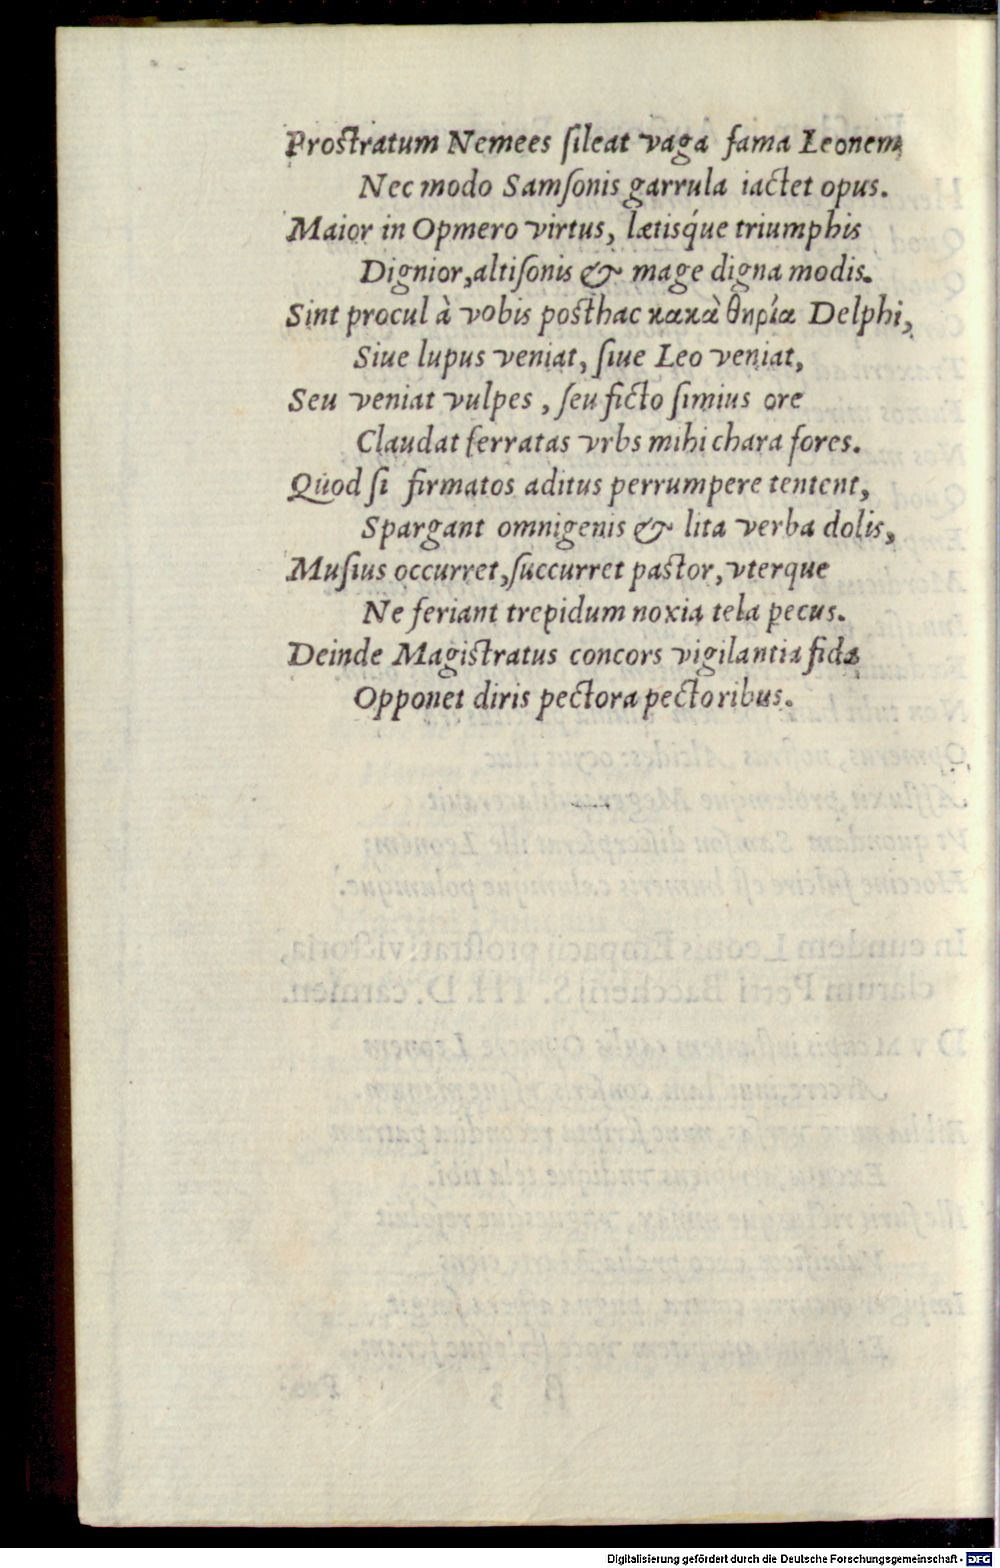 Proſtratum Nemees ſileat vaga fama Leonem
Nec modo Samſonis garrula iactet opus.
Maior in Opmero virtus, lætisq́ue triumphis
Dignior, altiſonis & mage digna modis.
Sint procul à vobis poſthac κακὰ θηρία Delphi,
Siue lupus veniat, ſiue Leo veniat,
Seu veniat vulpes, ſeu ficto ſimius ore
Claudat ferratas vrbs mihi chara fores.
Quod ſi firmatos aditus perrumpere tentent,
Spargant omnigenis & lita verba dolis,
Muſius occurret, ſuccurret paſtor, vterque
Ne feriant trepidum noxia tela pecus.
Deinde Magiſtratus concors vigilantia fida
Opponet diris pectora pectoribus.
Digitalisierung gefördert durch die Deutsche Forschungsgemeinschaft - DFG